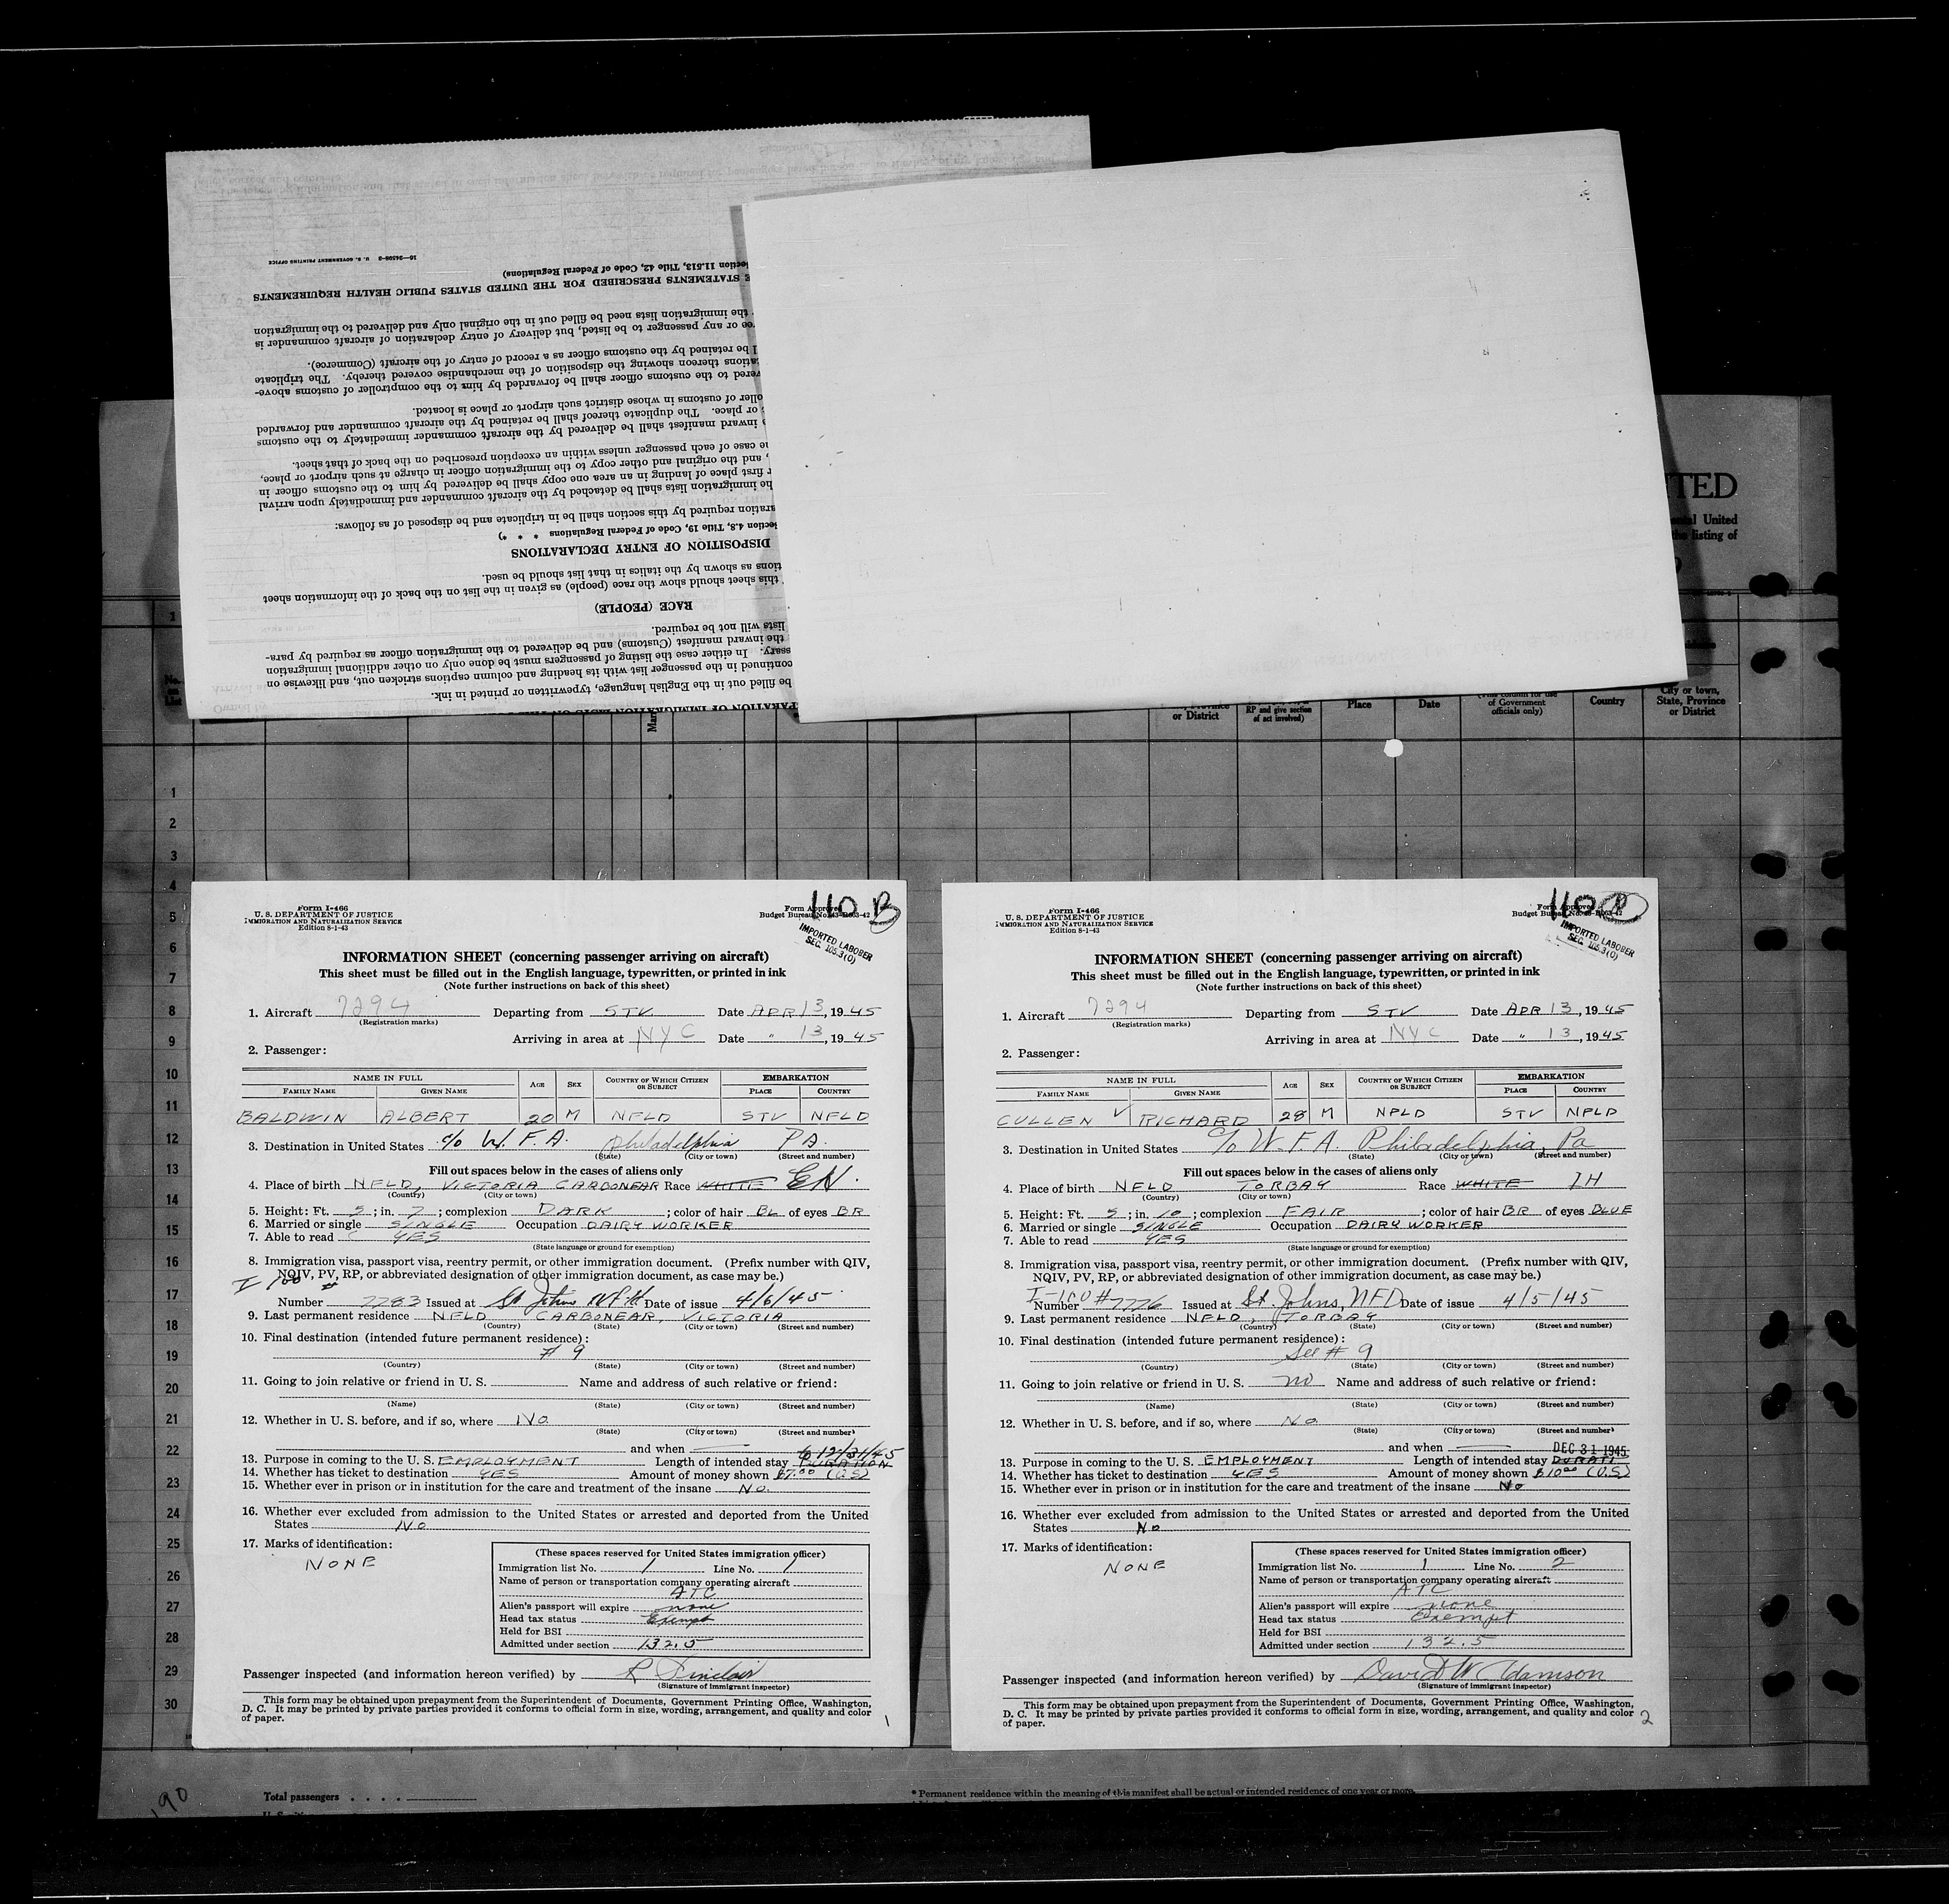 16—36598-2 U. S. GOVERNMENT PRINTING OFFICE
Section 11.513, Title 42, Code of Federal Regulations)
STATEMENTS PRESCRIBED FOR THE UNITED STATES PUBLIC HEALTH REQUIREMENTS
the immigration lists need be filled out in the original only and delivered to the immigration
or any passenger to be listed, but delivery of entry declaration of aircraft commander is
be retained by the customs officer as a record of entry of the aircraft (Commerce).
thereon showing the disposition of the merchandise covered thereby. The triplicate
to the customs officer shall be forwarded by him to the comptroller of customs above-
of customs in whose district such airport or place is located.
or place. The duplicate thereof shall be retained by the aircraft commander and forwarded
inward manifest shall be delivered by the aircraft commander immediately to the customs
case of each passenger unless within an exception prescribed on the back of that sheet.
and the original and other copy to the immigration officer in charge at such airport or place,
first place of landing in an area one copy shall be delivered by him to the customs officer in
the immigration lists shall be detached by the aircraft commander and immediately upon arrival
required by this section shall be in triplicate and be disposed of as follows:
Section 4.8, Title 19, Code of Federal Regulations * * *)
DISPOSITION OF ENTRY DECLARATIONS
as shown by the italics in that list should be used.
this sheet should show the race (people) as given in the list on the back of the information sheet
RACE (PEOPLE)
lists will not be required.
the inward manifest (Customs) and be delivered to the immigration officer as required by para-
In either case the listing of passengers must be done only on other additional immigration
continued in the passenger list with its heading and column captions stricken out, and likewise on
be filled out in the English language, typewritten or printed in ink.
TED
United
listing of
or District
RP and give section of act involved)
Place
Date
of Government officials only)
Country
City or town, State, Province or District
1
2
3
4
5
6
7
8
9
10
11
12
13
14
15
16
17
18
19
20
21
22
23
24
25
26
27
28
29
30
Form I-466
U. S. DEPARTMENT OF JUSTICE
IMMIGRATION AND NATURALIZATION SERVICE
Edition 8-1-43
110 B
Form Approved
Budget Bureau No. 43-R063-42
IMPORTED LABORER
SEC. 105.3(O)
INFORMATION SHEET (concerning passenger arriving on aircraft)
This sheet must be filled out in the English language, typewritten, or printed in ink
(Note further instructions on back of this sheet)
1. Aircraft 7294 Departing from STV Date APR 13, 1945
(Registration marks)
Arriving in area at NYC Date " 13, 1945
2. Passenger:
NAME IN FULL AGE SEX COUNTRY OF WHICH CITIZEN OR SUBJECT EMBARKATION
FAMILY NAME GIVEN NAME PLACE COUNTRY
BALDWIN ALBERT 20 M NFLD STV NFLD
3. Destination in United States c/o W.F.A. Philadelphia PA.
(State) (City or town) (Street and number)
Fill out spaces below in the cases of aliens only
4. Place of birth NFLD, VICTORIA CARBONEAR Race WHITE EN.
(Country) (City or town)
5. Height: Ft. 5; in. 7; complexion DARK; color of hair BL of eyes BR
6. Married or single SINGLE Occupation DAIRY WORKER
7. Able to read YES
(State language or ground for exemption)
8. Immigration visa, passport visa, reentry permit, or other immigration document. (Prefix number with QIV,
NQIV, PV, RP, or abbreviated designation of other immigration document, as case may be.)
I-100
Number 7783 Issued at St Johns Nfld Date of issue 4/6/45
9. Last permanent residence NFLD CARBONEAR, VICTORIA
(Country) (State) (City or town) (Street and number)
10. Final destination (intended future permanent residence):
# 9
(Country) (State) (City or town) (Street and number)
11. Going to join relative or friend in U. S. Name and address of such relative or friend:
(Name) (State) (City or town) (Street and number)
12. Whether in U. S. before, and if so, where No
(State) (City or town) (Street and number)
and when to 12/31/45
13. Purpose in coming to the U. S. EMPLOYMENT Length of intended stay DURATION
14. Whether has ticket to destination YES Amount of money shown $7.00 (U.S)
15. Whether ever in prison or in institution for the care and treatment of the insane No.
16. Whether ever excluded from admission to the United States or arrested and deported from the United
States No
17. Marks of identification:
NONE
(These spaces reserved for United States immigration officer)
Immigration list No. 1 Line No. 1
Name of person or transportation company operating aircraft
ATC
Alien's passport will expire none
Head tax status Exempt
Held for BSI
Admitted under section 132.5
Passenger inspected (and information hereon verified) by R Sinclair
(Signature of immigrant inspector)
This form may be obtained upon prepayment from the Superintendent of Documents, Government Printing Office, Washington,
D. C. It may be printed by private parties provided it conforms to official form in size, wording, arrangement, and quality and color
of paper.
1
Form I-466
U. S. DEPARTMENT OF JUSTICE
IMMIGRATION AND NATURALIZATION SERVICE
Edition 8-1-43
110
Form Approved
Budget Bureau No. 43-R063-42
IMPORTED LABORER
SEC. 105.3(O)
INFORMATION SHEET (concerning passenger arriving on aircraft)
This sheet must be filled out in the English language, typewritten, or printed in ink
(Note further instructions on back of this sheet)
1. Aircraft 7294 Departing from STV Date APR 13, 1945
(Registration marks)
Arriving in area at NYC Date " 13, 1945
2. Passenger:
NAME IN FULL AGE SEX COUNTRY OF WHICH CITIZEN OR SUBJECT EMBARKATION
FAMILY NAME GIVEN NAME PLACE COUNTRY
CULLEN RICHARD 28 M NFLD STV NFLD
3. Destination in United States c/o W.F.A. Philadelphia, Pa
(State) (City or town) (Street and number)
Fill out spaces below in the cases of aliens only
4. Place of birth NFLD TORBAY Race WHITE IH
(Country) (City or town)
5. Height: Ft. 5; in. 10; complexion FAIR; color of hair BR of eyes BLUE
6. Married or single SINGLE Occupation DAIRY WORKER
7. Able to read YES
(State language or ground for exemption)
8. Immigration visa, passport visa, reentry permit, or other immigration document. (Prefix number with QIV,
NQIV, PV, RP, or abbreviated designation of other immigration document, as case may be.)
I-100
Number #7776 Issued at St. Johns, NFD Date of issue 4/5/45
9. Last permanent residence NFLD, TORBAY
(Country) (State) (City or town) (Street and number)
10. Final destination (intended future permanent residence):
See # 9
(Country) (State) (City or town) (Street and number)
11. Going to join relative or friend in U. S. no Name and address of such relative or friend:
(Name) (State) (City or town) (Street and number)
12. Whether in U. S. before, and if so, where No
(State) (City or town) (Street and number)
and when DEC 31 1945
13. Purpose in coming to the U. S. EMPLOYMENT Length of intended stay
14. Whether has ticket to destination YES Amount of money shown $10.00 (U.S)
15. Whether ever in prison or in institution for the care and treatment of the insane No
16. Whether ever excluded from admission to the United States or arrested and deported from the United
States No
17. Marks of identification:
NONE
(These spaces reserved for United States immigration officer)
Immigration list No. 1 Line No. 2
Name of person or transportation company operating aircraft
ATC
Alien's passport will expire none
Head tax status Exempt
Held for BSI
Admitted under section 132.5
Passenger inspected (and information hereon verified) by David W Adamson
(Signature of immigrant inspector)
This form may be obtained upon prepayment from the Superintendent of Documents, Government Printing Office, Washington,
D. C. It may be printed by private parties provided it conforms to official form in size, wording, arrangement, and quality and color
of paper.
2
190
Total passengers
* Permanent residence within the meaning of this manifest shall be actual or intended residence of one year or more.